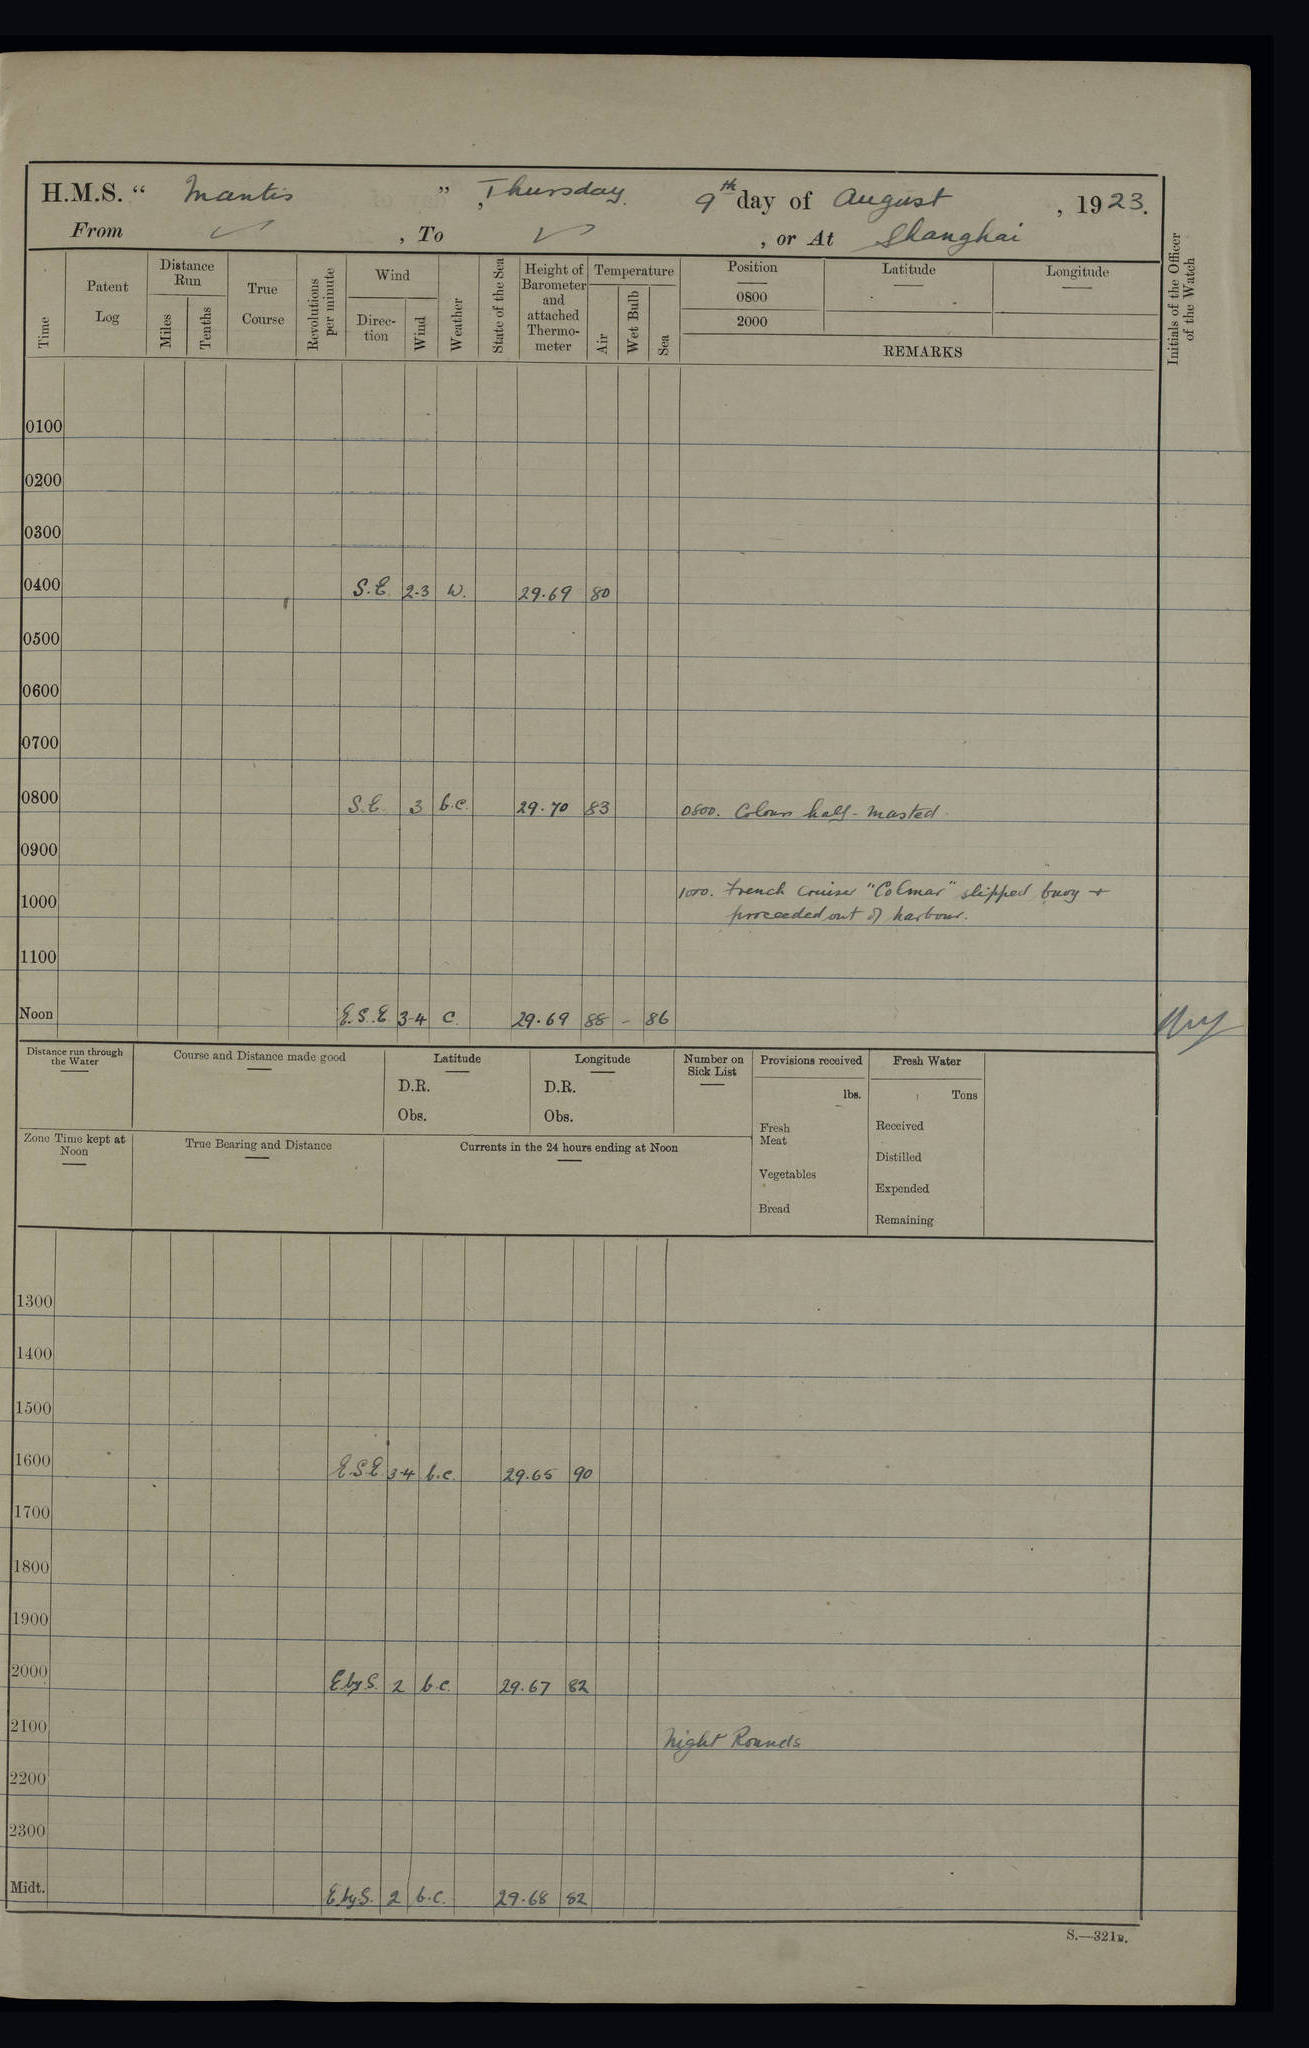 H.M.S. " Mantis ", Thursday. 9th day of August, 1923.
From ✓, To ✓, or At Shanghai
Initials of the Officer of the Watch
Time
Patent Log
Distance Run
Miles
Tenths
True Course
Revolutions per minute
Wind
Direc-tion
Wind
Weather
State of the Sea
Height of Barometer and attached Thermo-meter
Temperature
Air
Wet Bulb
Sea
Position
0800
2000
Latitude
Longitude
REMARKS
0100
0200
0300
0400 S.E. 2-3 w. 29.69 80
0500
0600
0700
0800 S.E. 3 b.c. 29.70 83 0800. Colours half-masted.
0900
1000. French cruiser "Colmar" slipped buoy +
1000 proceeded out of harbour.
1100
Noon E.S.E 3-4 c. 29.69 88 - 86
Distance run through the Water
Course and Distance made good
Latitude
D.R.
Obs.
Longitude
D.R.
Obs.
Number on Sick List
Provisions received
lbs.
Fresh Meat
Vegetables
Bread
Fresh Water
Tons
Received
Distilled
Expended
Remaining
Zone Time kept at Noon
True Bearing and Distance
Currents in the 24 hours ending at Noon
1300
1400
1500
1600 E.S.E. 3-4 b.c. 29.65 90
1700
1800
1900
2000 E.by S. 2 b.c. 29.67 82
2100 Night Rounds
2200
2300
Midt. E.by S. 2 b.c. 29.68 82
S.—321B.